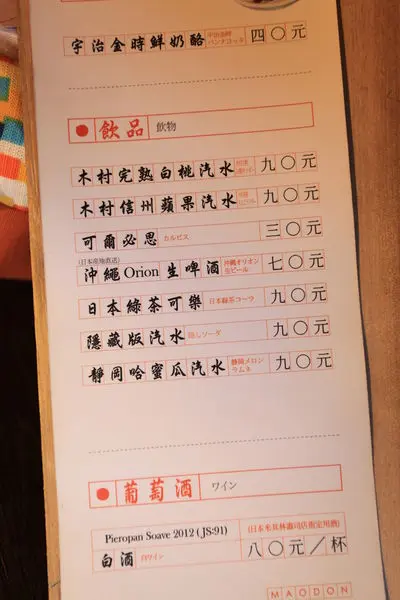 宇治金時鮮奶酪 宇治金時パンナコッタ 四〇元
飲品 飲物
木村完熟白桃汽水 九〇元
木村信州蘋果汽水 九〇元
可爾必思 カルピス 三〇元
(日本産地直送)
沖繩 Orion 生啤酒 沖縄オリオン生ビール 七〇元
日本綠茶可樂 日本緑茶コーラ 九〇元
隱藏版汽水 隠しソーダ 九〇元
靜岡哈蜜瓜汽水 静岡メロンラムネ 九〇元
葡萄酒 ワイン
Pieropan Soave 2012 ( JS:91) (日本米其林壽司店指定用酒)
白酒 白ワイン 八〇元／杯
MAODON